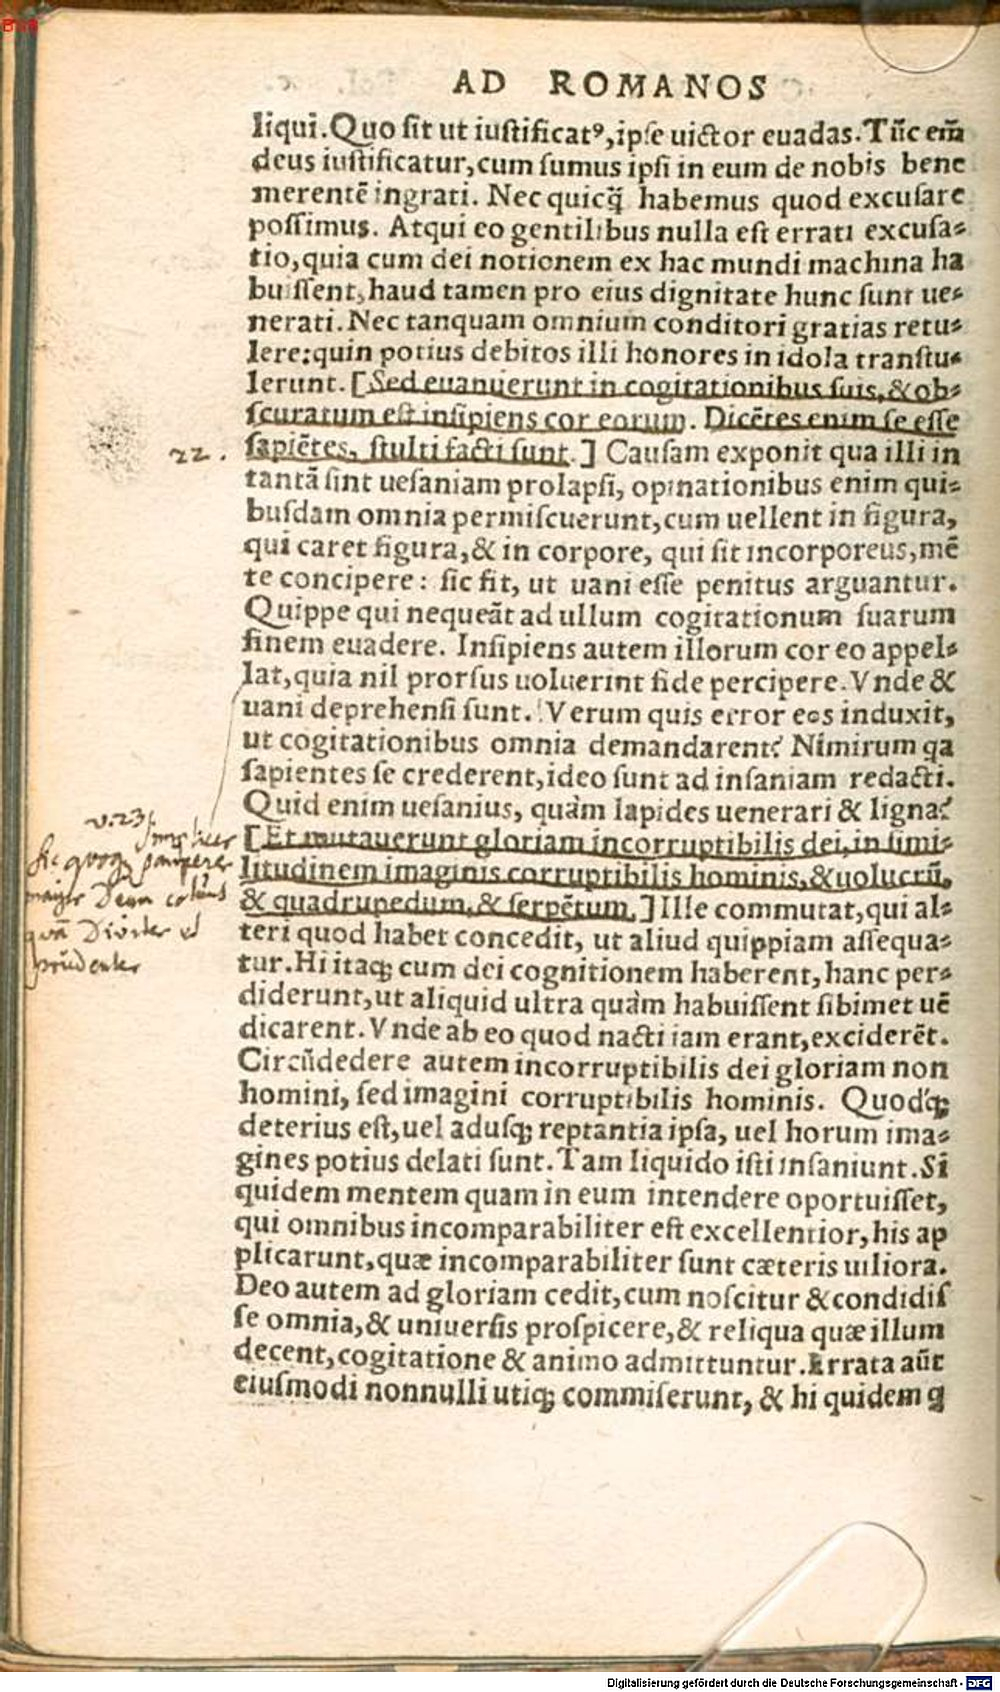 AD ROMANOS
liqui. Quo ſit ut iuſtificatꝰ, ipſe uictor euadas. Tũc em̃
deus iuſtificatur, cum ſumus ipſi in eum de nobis bene
merentẽ ingrati. Nec quicq̃ habemus quod excuſare
poſſimus. Atqui eo gentilibus nulla eſt errati excuſa⸗
tio, quia cum dei notionem ex hac mundi machina ha
buiſſent, haud tamen pro eius dignitate hunc ſunt ue⸗
nerati. Nec tanquam omnium conditori gratias retu⸗
lere: quin potius debitos illi honores in idola tranſtu⸗
lerunt. [Sed euanuerunt in cogitationibus ſuis, & ob⸗
ſcuratum eſt inſipiens cor eorum. Dicẽtes enim ſe eſſe
22. ſapiẽtes, ſtulti facti ſunt.] Cauſam exponit qua illi in
tantã ſint ueſaniam prolapſi, opinationibus enim qui⸗
buſdam omnia permiſcuerunt, cum uellent in figura,
qui caret figura, & in corpore, qui ſit incorporeus, mẽ
te concipere: ſic fit, ut uani eſſe penitus arguantur.
Quippe qui nequeãt ad ullum cogitationum ſuarum
finem euadere. Inſipiens autem illorum cor eo appel⸗
lat, quia nil prorſus uoluerint fide percipere. Vnde &
uani deprehenſi ſunt. Verum quis error eos induxit,
ut cogitationibus omnia demandarent? Nimirum qa
ſapientes ſe crederent, ideo ſunt ad inſaniam redacti.
Quid enim ueſanius, quàm lapides uenerari & ligna?
v.23.
[Et mutauerunt gloriam incorruptibilis dei, in ſimi⸗
litudinem imaginis corruptibilis hominis, & uolucrũ,
& quadrupedum, & ſerpẽtum.] Ille commutat, qui al⸗
teri quod habet concedit, ut aliud quippiam aſſequa⸗
tur. Hi itaqꝫ cum dei cognitionem haberent, hanc per⸗
diderunt, ut aliquid ultra quàm habuiſſent ſibimet uẽ
dicarent. Vnde ab eo quod nacti iam erant, exciderẽt.
Circũdedere autem incorruptibilis dei gloriam non
homini, ſed imagini corruptibilis hominis. Quodqꝫ
deterius eſt, uel aduſqꝫ reptantia ipſa, uel horum ima⸗
gines potius delati ſunt. Tam liquido iſti inſaniunt. Si
quidem mentem quam in eum intendere oportuiſſet,
qui omnibus incomparabiliter eſt excellentior, his ap
plicarunt, quæ incomparabiliter ſunt cæteris uiliora.
Deo autem ad gloriam cedit, cum noſcitur & condidiſ
ſe omnia, & uniuerſis proſpicere, & reliqua quæ illum
decent, cogitatione & animo admittuntur. Errata aũt
eiuſmodi nonnulli utiqꝫ commiſerunt, & hi quidem q
Digitalisierung gefördert durch die Deutsche Forschungsgemeinschaft - DFG